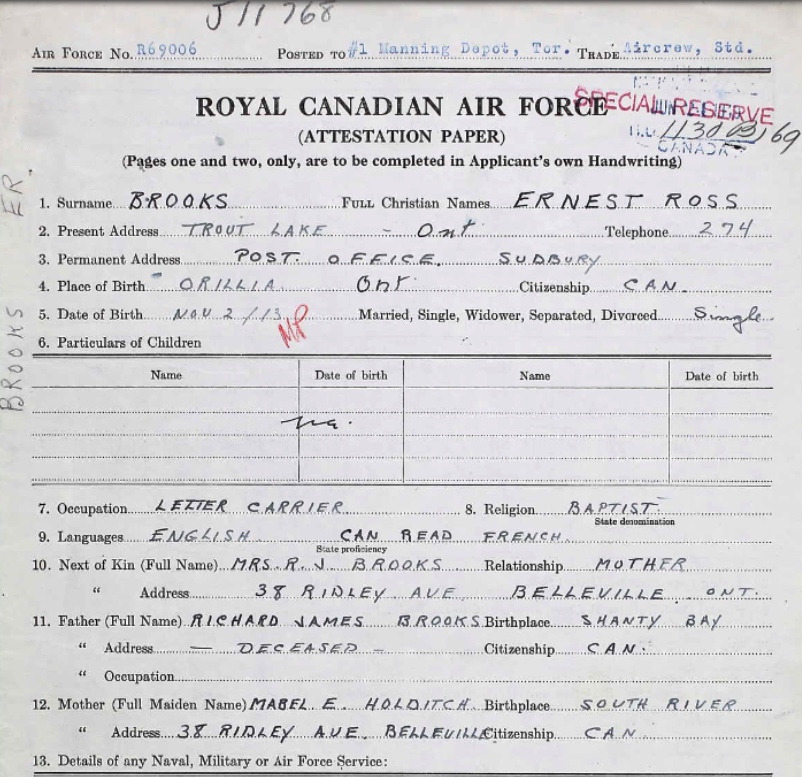 J11768
AIR FORCE No. R69006 POSTED TO #1 Manning Depot, Tor. TRADE Aircrew, Std.
ROYAL CANADIAN AIR FORCE
SPECIAL RESERVE
(ATTESTATION PAPER)
CANADA
(Pages one and two, only, are to be completed in Applicant's own Handwriting)
BROOKS ER.
1. Surname BROOKS FULL Christian Names ERNEST ROSS
2. Present Address TROUT LAKE - Ont Telephone 274
3. Permanent Address POST OFFICE. SUDBURY
4. Place of Birth ORILLIA. Ont. Citizenship CAN.
5. Date of Birth NOV 2/13 MP Married, Single, Widower, Separated, Divorced Single
6. Particulars of Children
Name Date of birth Name Date of birth
na.
7. Occupation LETTER CARRIER 8. Religion BAPTIST.
State denomination
9. Languages ENGLISH CAN READ FRENCH.
State proficiency
10. Next of Kin (Full Name) MRS. R. J. BROOKS Relationship MOTHER
" Address 38 RIDLEY AVE BELLEVILLE ONT.
11. Father (Full Name) RICHARD JAMES BROOKS Birthplace SHANTY BAY
" Address — DECEASED - Citizenship CAN.
" Occupation
12. Mother (Full Maiden Name) MABEL E. HOLDITCH Birthplace SOUTH RIVER
" Address 38 RIDLEY AVE. BELLEVILLE Citizenship CAN.
13. Details of any Naval, Military or Air Force Service: